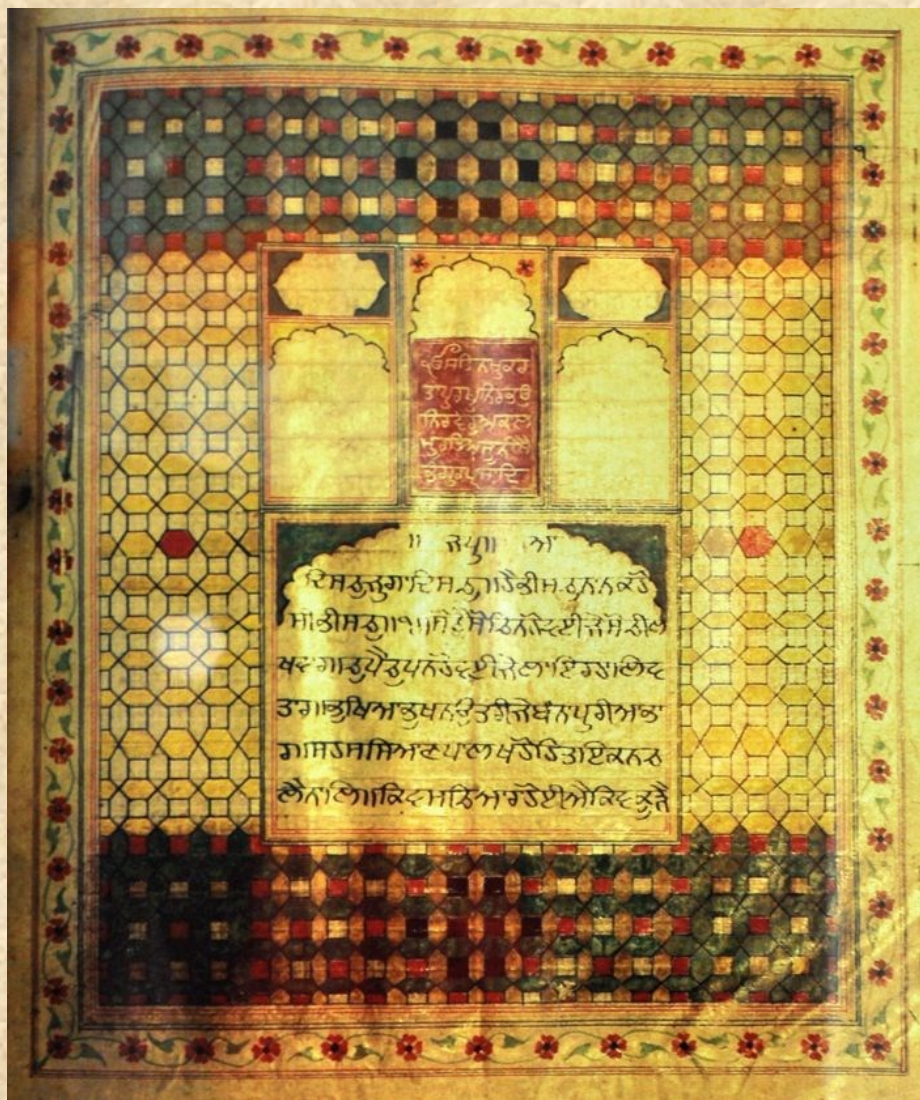 ੴਸਤਿਨਾਮੁਕਰ
ਤਾਪੁਰਖੁਨਿਰਭਉ
ਨਿਰਵੈਰੁਅਕਾਲ
ਮੂਰਤਿਅਜੂਨੀਸੈ
ਭੰਗੁਰਪ੍ਰਸਾਦਿ
॥ ਜਪੁ॥ ਆ
ਦਿਸਚੁਜੁਗਾਦਿਸਚੁ॥ਹੈਭੀਸਚੁਨਾਨਕਹੋ
ਸੀਭੀਸਚੁ॥੧॥ਸੋਚੈਸੋਚਿਨਹੋਵਈਜੇਸੋਚੀਲ
ਖਵਾਰ॥ਚੁਪੈਚੁਪਨਹੋਵਈਜੇਲਾਇਰਹਾਲਿਵ
ਤਾਰ॥ਭੁਖਿਆਭੁਖਨਉਤਰੀਜੇਬੰਨਾਪੁਰੀਆਭਾ
ਰ॥ਸਹਸਸਿਆਣਪਾਲਖਹੋਹਿਤਾਇਕਨਚ
ਲੈਨਾਲਿ॥ਕਿਵਸਚਿਆਰਾਹੋਈਐਕਿਵਕੂੜੈ